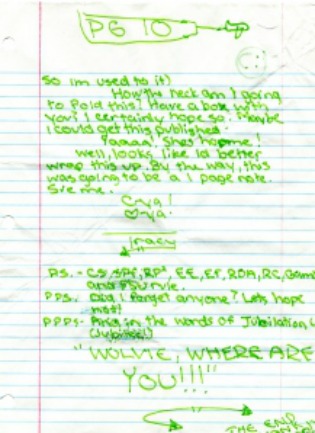 PG 10
So im used to it)
How the heck am I going
to fold this! Have a box with
you? I certainly hope so. Maybe
I could get this published.
Yaaaa! Shes home!
well, looks like Id better
wrap this up. By the way, this
was going to be a 1 page note.
See me.
C-ya!
ya!
Tracy
P.S. - CS, SPF, RP, EE, EF, RDA, RC,
and
PPS. Did I forget anyone? Lets hope
not!
PPPS- And in the words of Jubilation, L
(Jubilee)
"WOLVIE, WHERE ARE
YOU!!!"
THE END